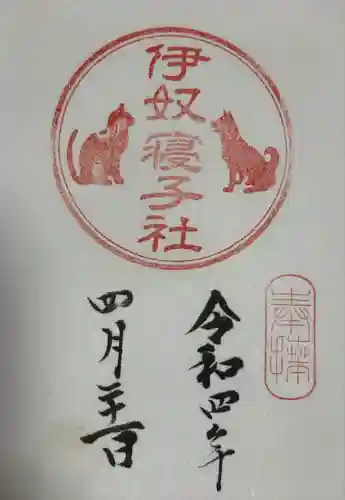 伊奴寝子社
奉拝
令和四年
四月二十一日